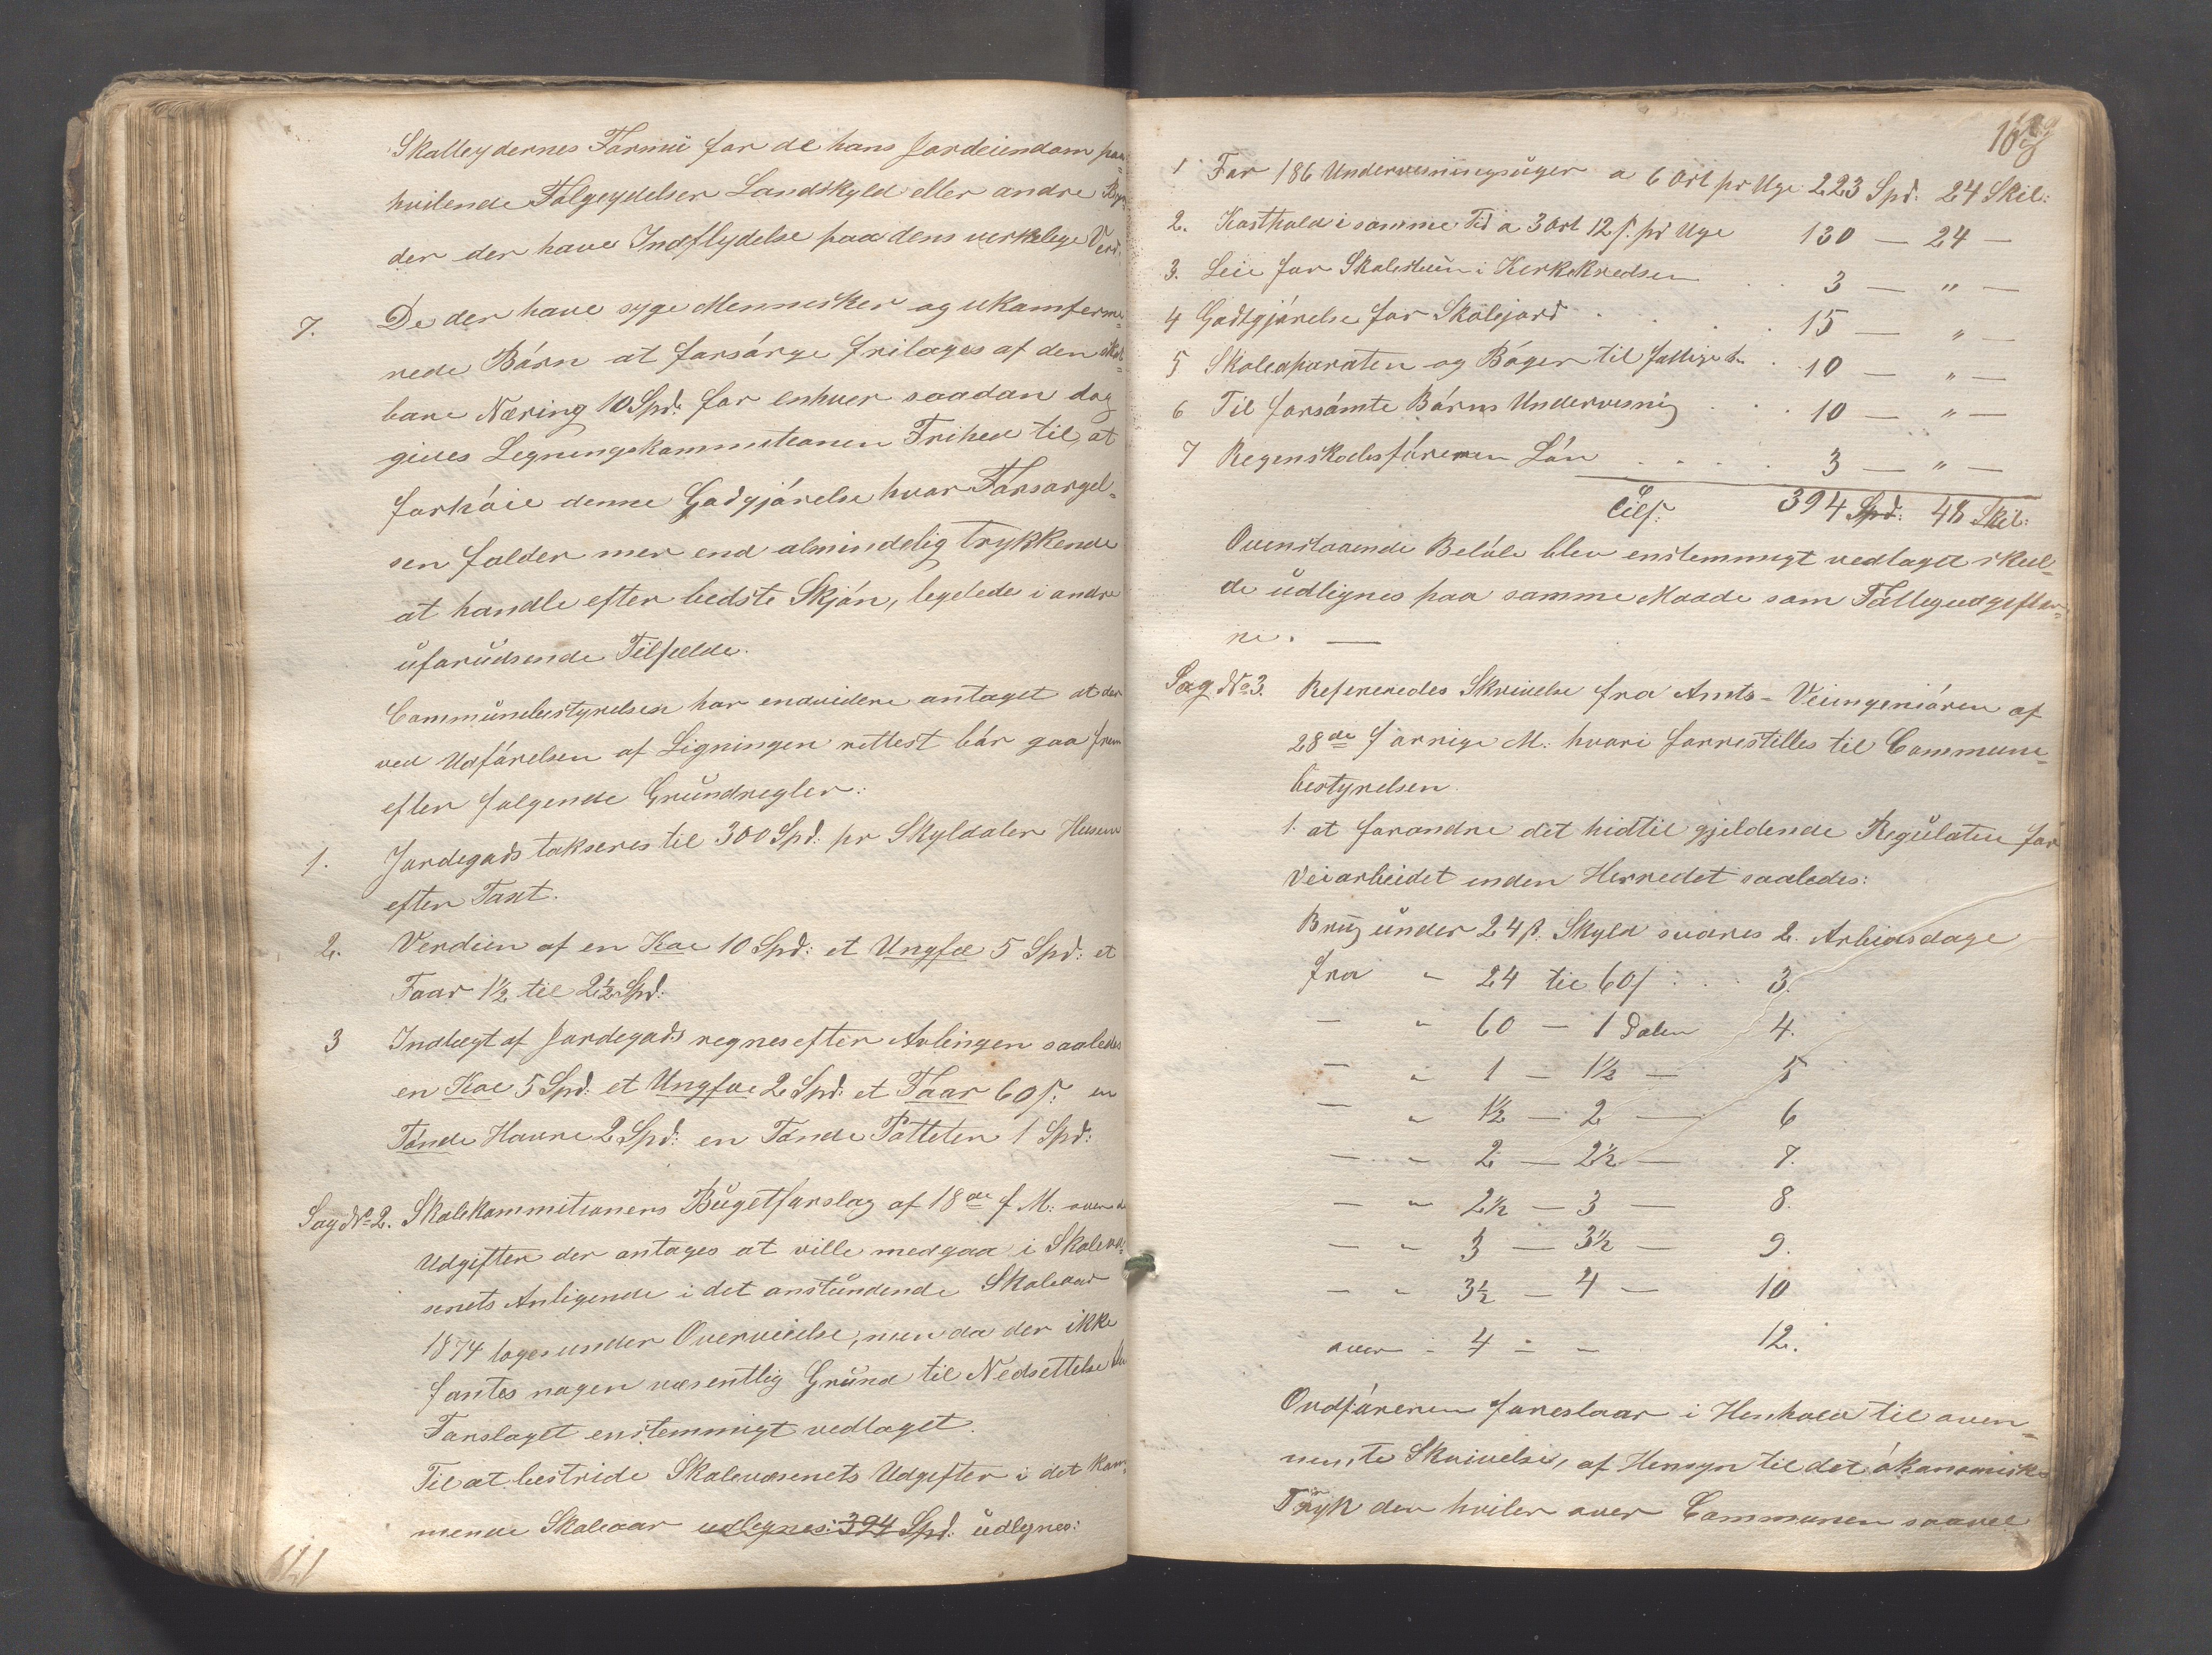 Skatteydernes Formue for de hans Jordeiendom paa-
hvilende Følgeydelser Landskyld eller andre
der der have Indflydelse paa dens verkelige Verd.
7. De der have syge Mennesker og ukomferme-
rede Børn at forsørge frilages af den skat-
bare Næring 10 Spd: for enhver saadan dog
gives Legningskommitionen Frihed til at
forhøie denne Godgjørelse hvor Forsørgel-
sen falder mer end almindelig trykkende
at handle efter bedste Skjøn, legeledes i andre
uforudsende Tilfælde.
Communbestyrelsen har endvidere antaget at der
ved Udførelsen af Ligningen rettest bør gaa frem
efter følgende Grundregler:
1. Jordegods takseres til 300 Spd: pr Skyldaler Husene
efter Taxt.
2. Verdien af en Koe 10 Spd: et Ungfæ 5 Spd: et
Faar 1½ til 2½ Spd:
3 Indtægt af Jordegods regnes efter Avlingen saaledes
en Koe 5 Spd: et Ungfæ 2 Spd: et Faar 60 s: en
Tønde Havre 2 Spd: en Tønde Potteter 1 Spd:
Sag No 2. Skolekommitionens Bugetforslag af 18de f. M: over de
Udgifter der antages at ville medgaa i Skolevæ-
senets Anligende i det anstundende Skoleaar
1874 toges under Overveielse, men da der ikke
fantes nogen væsentlig Grund til Nedsettelse blev
Forslaget enstemmigt vedtaget.
Til at bestride Skolevæsenets Udgifter i det kom-
mende Skoleaar udlegnes: 394 Spd: udlegnes:
1 For 186 Undervisningsuger a 6 Ort pr Uge 223 Spd: 24 Skil:
2. Kosthold i samme Tid a 3 Ort 12 s. pr Uge 130 — 24 —
3. Leie for Skolestuen i Kerkekredsen . . 3 — " —
4 Godtgjørelse for Skolejord . . . . 15 — " —
5 Skoleaparater og Bøger til fattige B. . 10 — " —
6 Til forsømte Børns Undervisnig . . . 10 — " —
7 Regenskabsførerens Løn . . . . 3 — " —
Tils: 394 Spd: 48 Skil:
Ovenstaaende Beløb blev enstemmigt vedtaget skul-
de udlignes paa samme Maade som Fattigudgifter-
ne. —
Sag No 3. Refereredes Skrivelse fra Amts-Veiingeniøren af
28de forrige M: hvori forrestilles til Commune-
bestyrelsen.
1. at forandre det hidtil gjeldende Regulativ for
Veiarbeidet inden Herredet saaledes:
Brug under 24 s. Skyld svares 2. Arbeidsdage
fra " 24 til 60 s . . . 3.
— " 60 — 1 Daler 4.
— " 1 — 1½ — 5
— " 1½ — 2 — 6
— " 2 — 2½ — 7.
— " 2½ — 3 — 8.
— " 3 — 3½ — 9.
— " 3½ — 4 — 10
over " 4 — — 12.
Ordføreren foreslaar i Henhold til oven-
nevnte Skrivelse, af Hensyn til det økonomiske
Tryk der hviler over Communen saavel